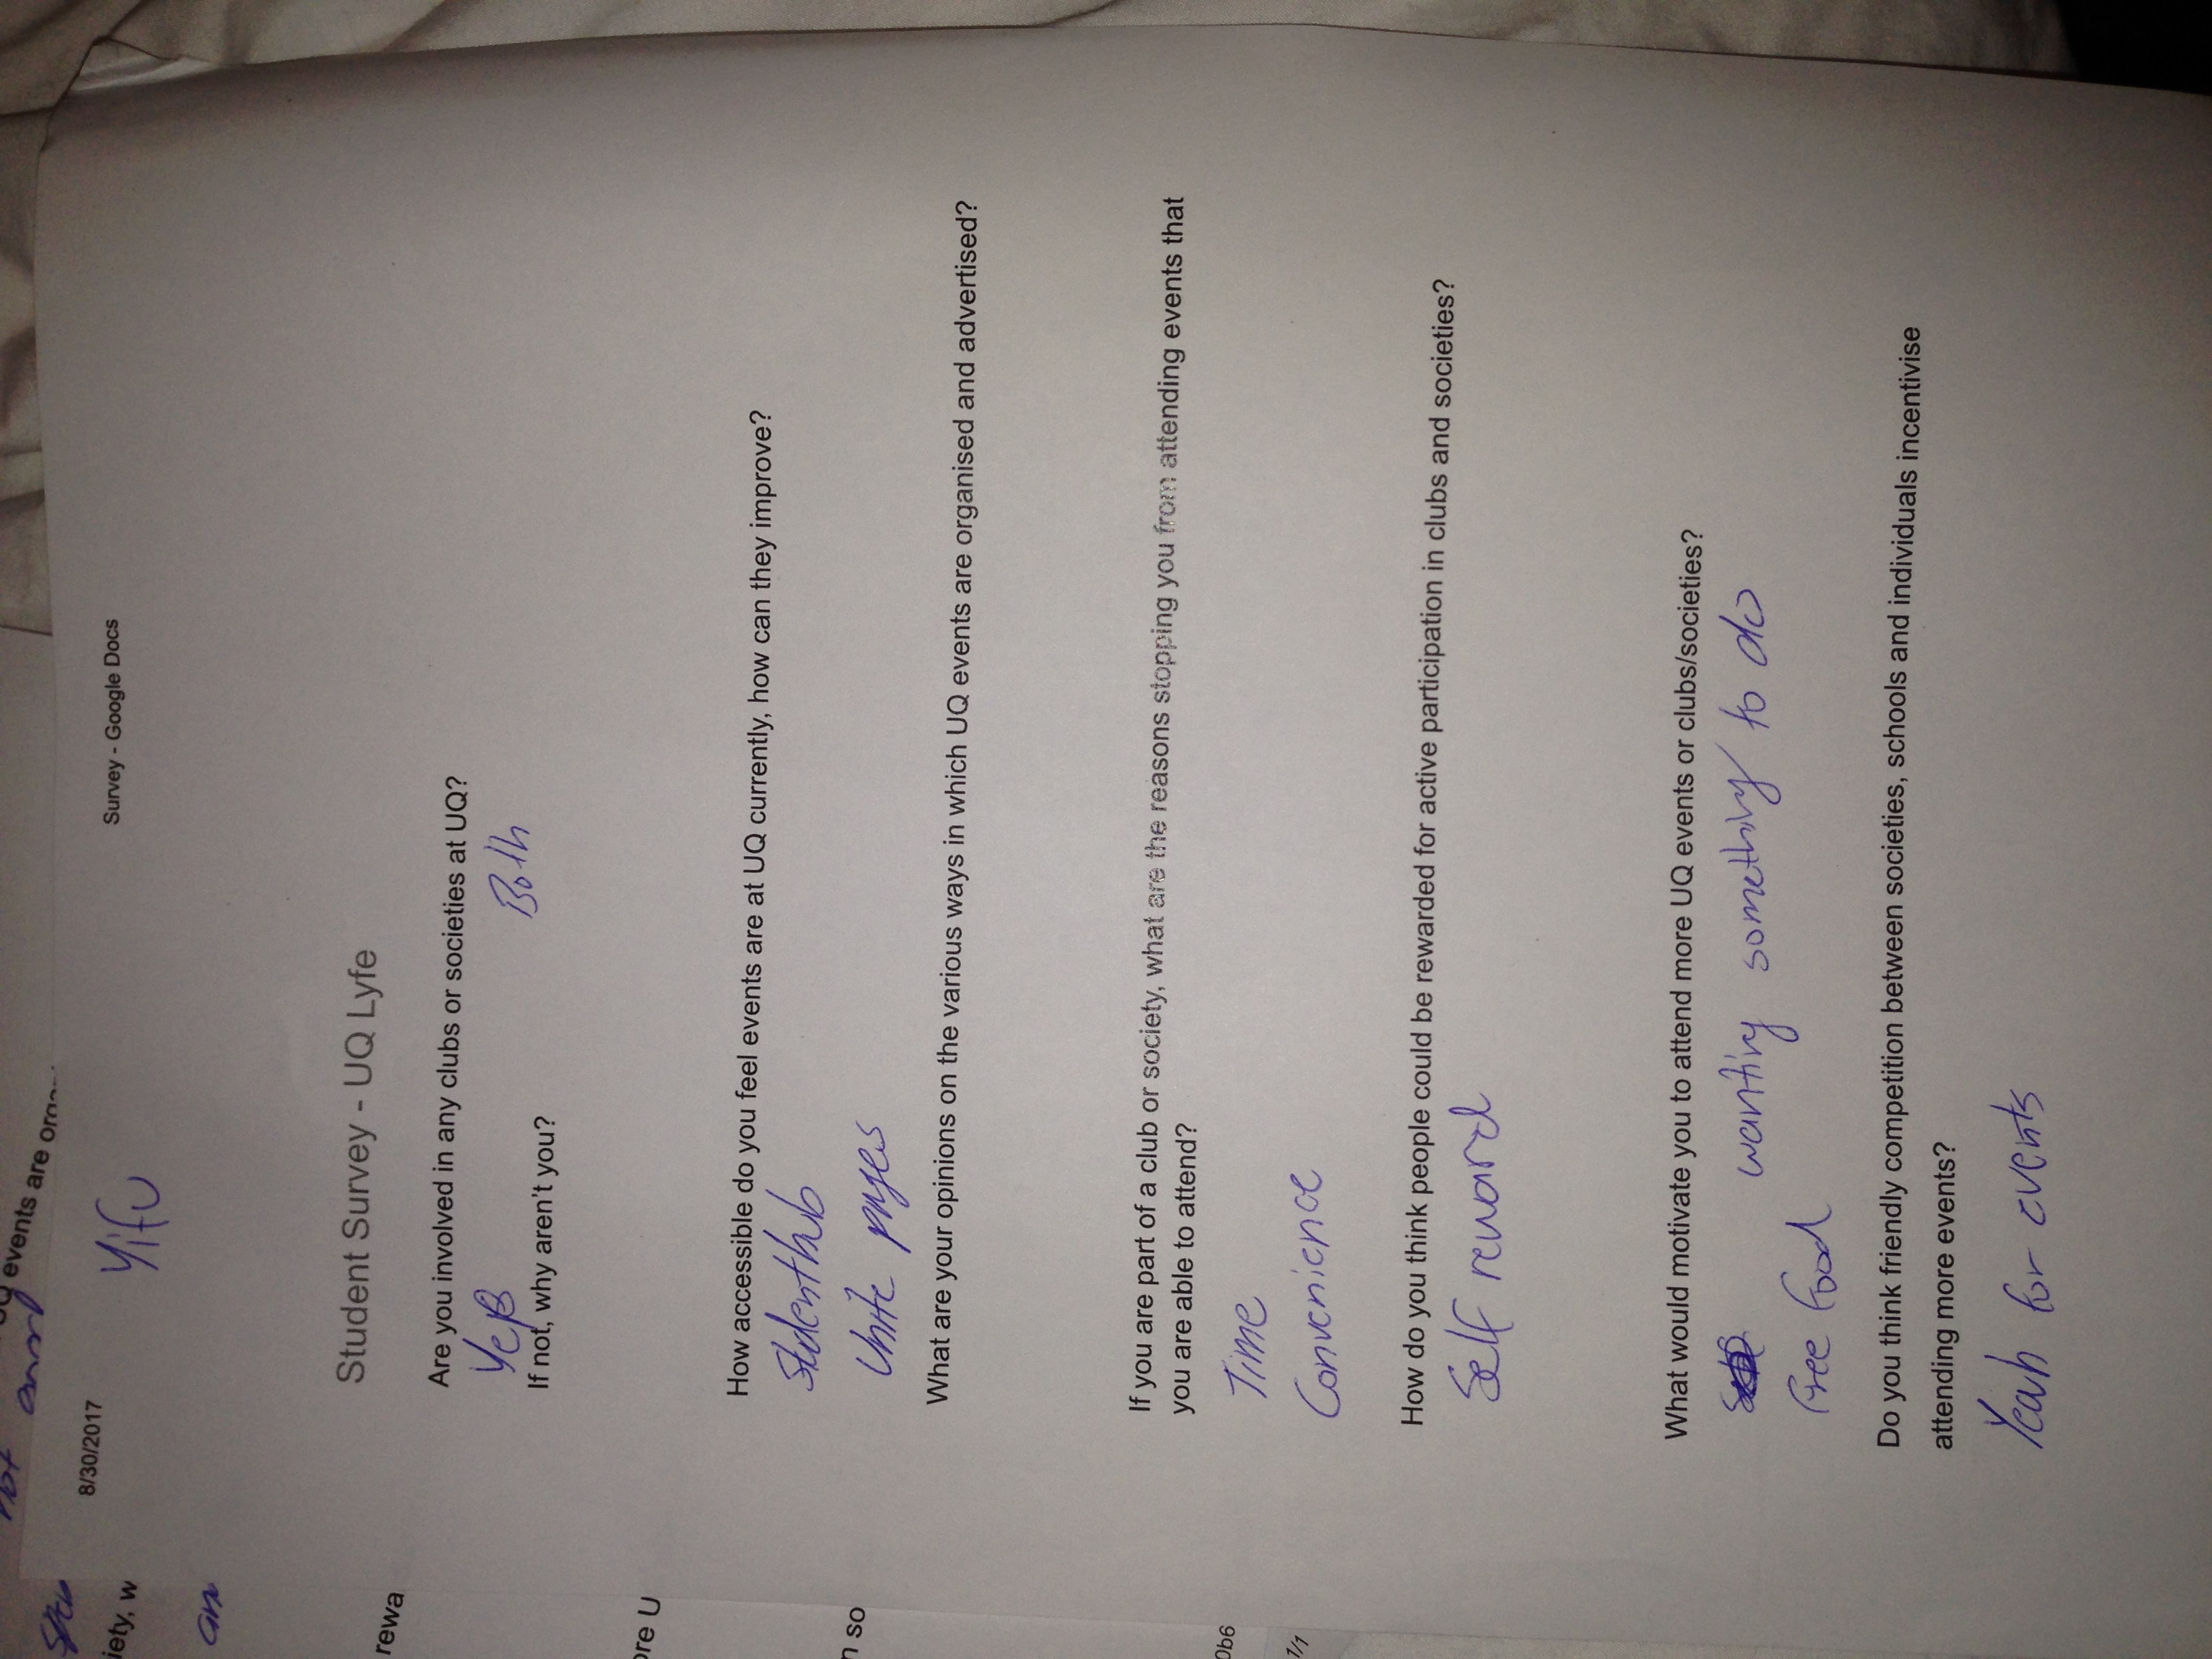 8/30/2017
Survey - Google Docs
Yifu
Student Survey - UQ Lyfe
Are you involved in any clubs or societies at UQ?
Yes
Both
If not, why aren't you?
How accessible do you feel events are at UQ currently, how can they improve?
Studenthub
Unite pages
What are your opinions on the various ways in which UQ events are organised and advertised?
If you are part of a club or society, what are the reasons stopping you from attending events that
you are able to attend?
Time
Convenience
How do you think people could be rewarded for active participation in clubs and societies?
Self reward
What would motivate you to attend more UQ events or clubs/societies?
wanting something to do
free food
Do you think friendly competition between societies, schools and individuals incentivise
attending more events?
Yeah for events
events are orga
not
iety, w
an
rewa
ore U
n so
0b6
1/1